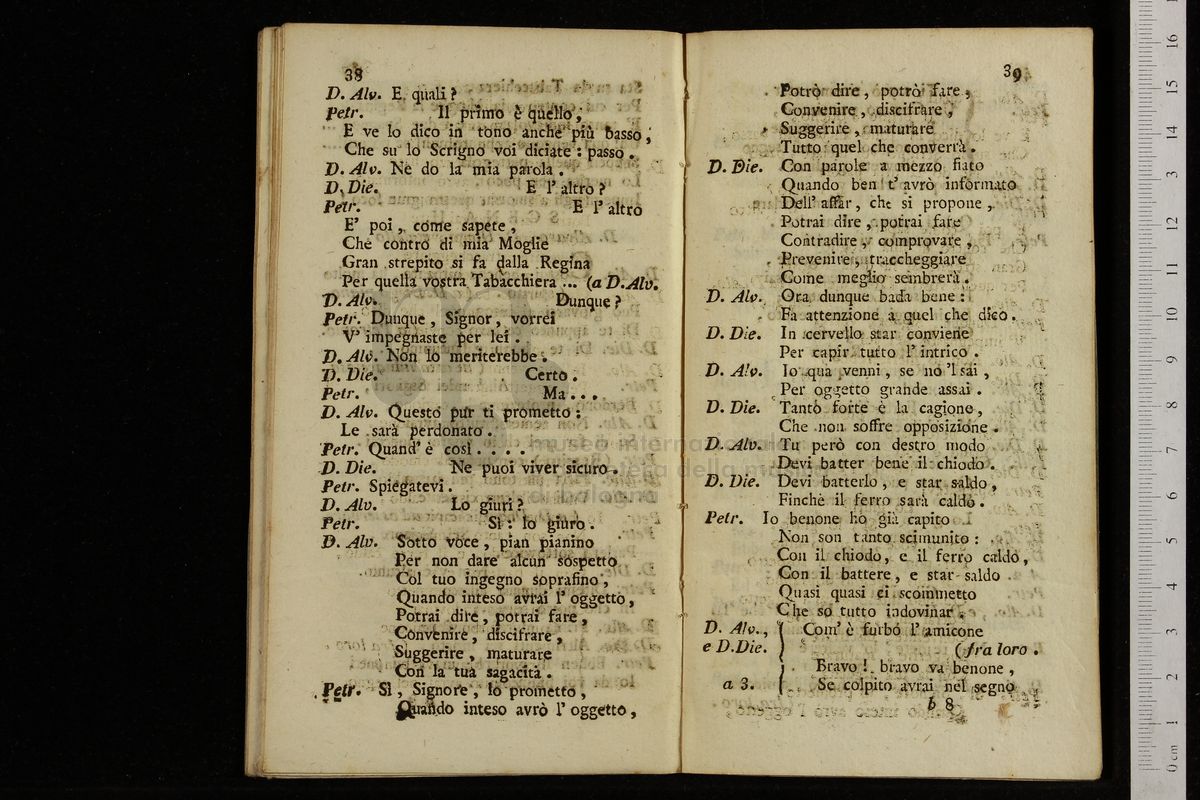 38
D. Alv. E quali ?
Petr. Il primo è quello ,
E ve lo dico in tono anche più basso ,
Che su lo Scrigno voi diciate : passo .
D. Alv. Ne do la mia parola .
D. Die. E l' altro ?
Petr. E l' altro
E' poi , come sapete ,
Che contro di mia Moglie
Gran strepito si fa dalla Regina
Per quella vostra Tabacchiera ... (a D.Alv.
D. Alv. Dunque ?
Petr. Dunque , Signor , vorrei
V' impegnaste per lei .
D. Alv. Non lo meriterebbe .
D. Die. Certo .
Petr. Ma . . .
D. Alv. Questo pur ti prometto :
Le sarà perdonato .
Petr. Quand' è così . . . .
D. Die. Ne puoi viver sicuro .
Petr. Spiegatevi .
D. Alv. Lo giuri ?
Petr. Sì : lo giuro .
D. Alv. Sotto voce , pian pianino
Per non dare alcun sospetto
Col tuo ingegno soprafino ,
Quando inteso avrai l' oggetto ,
Potrai dire , potrai fare ,
Convenire , discifrare ,
Suggerire , maturare
Con la tua sagacità .
Petr. Sì , Signore , lo prometto ,
Quando inteso avrò l' oggetto ,
39
Potrò dire , potrò fare ,
Convenire , discifrare ,
Suggerire , maturare
Tutto quel che converrà .
D. Die. Con parole a mezzo fiato
Quando ben t' avrò informato
Dell' affar , che si propone ,
Potrai dire , potrai fare
Contradire , comprovare ,
Prevenire , traccheggiare
Come meglio sembrerà .
D. Alv. Ora dunque bada bene :
Fa attenzione a quel che dico .
D. Die. In cervello star conviene
Per capir tutto l' intrico .
D. Alv. Io quà venni , se no 'l sai ,
Per oggetto grande assai .
D. Die. Tanto forte è la cagione ,
Che non soffre opposizione .
D. Alv. Tu però con destro modo
Devi batter bene il chiodo .
D. Die. Devi batterlo , e star saldo ,
Finchè il ferro sarà caldo .
Petr. Io benone ho già capito
Non son tanto scimunito :
Con il chiodo , e il ferro caldo ,
Con il battere , e star saldo
Quasi quasi ci scommetto
Che so tutto indovinar .
D. Alv. , { Com' è furbo l' amicone
e D.Die. } (fra loro .
Bravo ! bravo va benone ,
a 3. { Se colpito avrai nel segno
b 8
museo internazionale
e biblioteca della musica
di bologna
0 cm 1 2 3 4 5 6 7 8 9 10 11 12 13 14 15 16